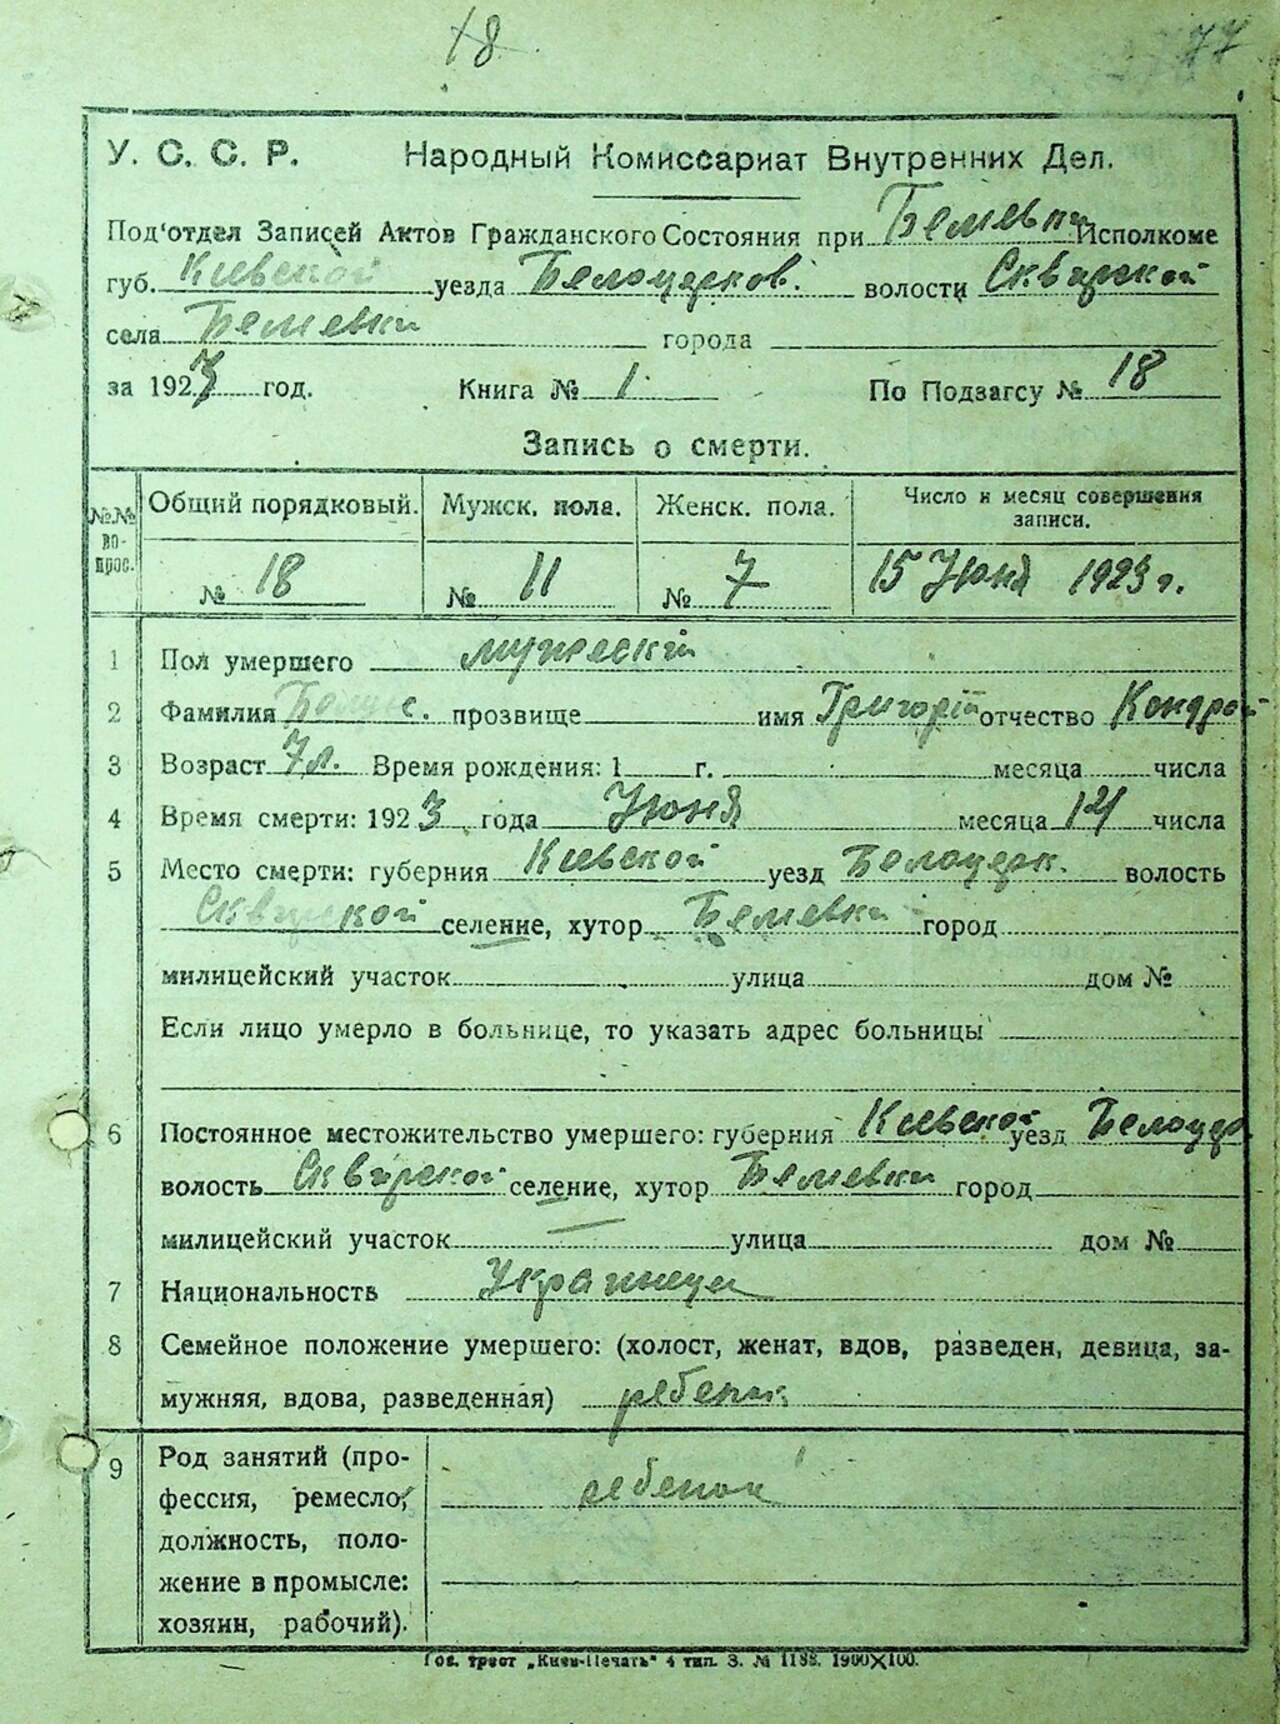 18.
77
У. С. С. Р. Народный Комиссариат Внутренних Дел.
Под'отдел Записей Актов Гражданского Состояния при Исполкоме
губ. Киевской уезда Белоцерков. волости Сквирской
села города
за 1923 год. Книга № 1. По Подзагсу № 18
Запись о смерти.
№№ вопрос. Общий порядковый. Мужск. пола. Женск. пола. Число и месяц совершения
записи.
№ 18 № 11 № 7 15 Июня 1923 г.
1 Пол умершего мужеский
2 Фамилия прозвище имя Григорій отчество Кондрат
3 Возраст 7 л. Время рождения: 1 г. месяца числа
4 Время смерти: 1923 года Июня месяца 14 числа
5 Место смерти: губерния Киевской уезд Белоцерк. волость
Сквирской селение, хутор город
милицейский участок улица дом №
Если лицо умерло в больнице, то указать адрес больницы
6 Постоянное местожительство умершего: губерния Киевской уезд Белоцер
волость Сквирской селение, хутор город
милицейский участок улица дом №
7 Национальность Украинец
8 Семейное положение умершего: (холост, женат, вдов, разведен, девица, за-
мужняя, вдова, разведенная) ребенок
9 Род занятий (про-
фессия, ремесло, ребенок
должность, поло-
жение в промысле:
хозяин, рабочий).
Гос. трест „Киев-Печать" 4 тип. З. № 1188. 1900×100.